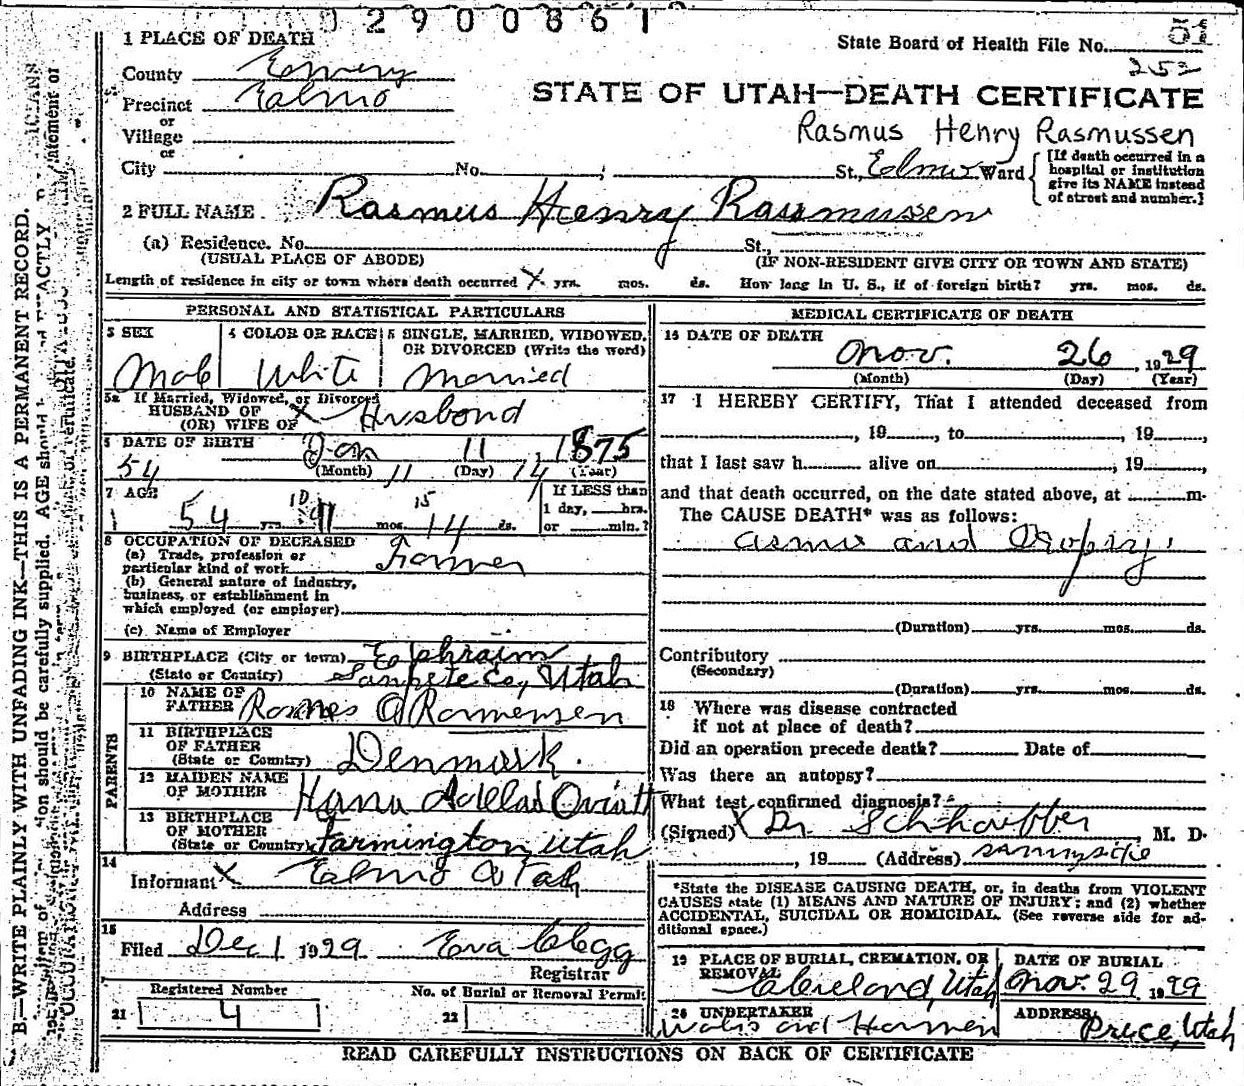 2900861
1 PLACE OF DEATH
State Board of Health File No. 51
County Emery
252
Precinct Ealmo
STATE OF UTAH—DEATH CERTIFICATE
or
Village
Rasmus Henry Rasmussen
or
City No. St., Elmo Ward
[If death occurred in a
hospital or institution
give its NAME instead
of street and number.]
2 FULL NAME Rasmus Henry Rasmussen
(a) Residence. No. St.,
(USUAL PLACE OF ABODE) (IF NON-RESIDENT GIVE CITY OR TOWN AND STATE)
Length of residence in city or town where death occurred X yrs. mos. ds. How long in U. S., if of foreign birth? yrs. mos. ds.
PERSONAL AND STATISTICAL PARTICULARS
3 SEX 4 COLOR OR RACE 5 SINGLE, MARRIED, WIDOWED,
OR DIVORCED (Write the word)
Male White Married
5a If Married, Widowed, or Divorced
HUSBAND OF
(OR) WIFE OF X Husbond
6 DATE OF BIRTH Jan 11, 1875
54 (Month) 11 (Day) 14 (Year)
7 AGE
54 yrs. 10 11 mos. 15 14 ds.
If LESS than
1 day, hrs.
or min.?
8 OCCUPATION OF DECEASED
(a) Trade, profession or
particular kind of work Farmer
(b) General nature of industry,
business, or establishment in
which employed (or employer)
(c) Name of Employer
9 BIRTHPLACE (City or town) Ephraim
(State or Country) Sanpete Co, Utah
PARENTS
10 NAME OF
FATHER
11 BIRTHPLACE
OF FATHER
(State or Country) Denmark.
12 MAIDEN NAME
OF MOTHER Hana Adelad Oviatt
13 BIRTHPLACE
OF MOTHER
(State or Country) Farmington, Utah
14
Informant X Ealmo Utah
Address
15
Filed Dec 1 1929 Eva Clegg
Registrar
Registered Number No. of Burial or Removal Permit
21 4 22
MEDICAL CERTIFICATE OF DEATH
16 DATE OF DEATH
Nov. 26, 1929
(Month) (Day) (Year)
17 I HEREBY CERTIFY, That I attended deceased from
, 19 , to , 19 ,
that I last saw h alive on , 19 ,
and that death occurred, on the date stated above, at m.
The CAUSE DEATH* was as follows:
asmo and Dropsy.
(Duration) yrs. mos. ds.
Contributory
(Secondary)
(Duration) yrs. mos. ds.
18 Where was disease contracted
if not at place of death?
Did an operation precede death? Date of
Was there an autopsy?
What test confirmed diagnosis?
(Signed) X Dr , M. D.
, 19 (Address) Sunnyside
*State the DISEASE CAUSING DEATH, or, in deaths from VIOLENT
CAUSES state (1) MEANS AND NATURE OF INJURY; and (2) whether
ACCIDENTAL, SUICIDAL OR HOMICIDAL. (See reverse side for ad-
ditional space.)
19 PLACE OF BURIAL, CREMATION, OR
REMOVAL
Cleveland, Utah
DATE OF BURIAL
Nov. 29 1929
20 UNDERTAKER
ADDRESS
Price, Utah
READ CAREFULLY INSTRUCTIONS ON BACK OF CERTIFICATE
B—WRITE PLAINLY WITH UNFADING INK—THIS IS A PERMANENT RECORD.
tion should be carefully supplied. AGE should